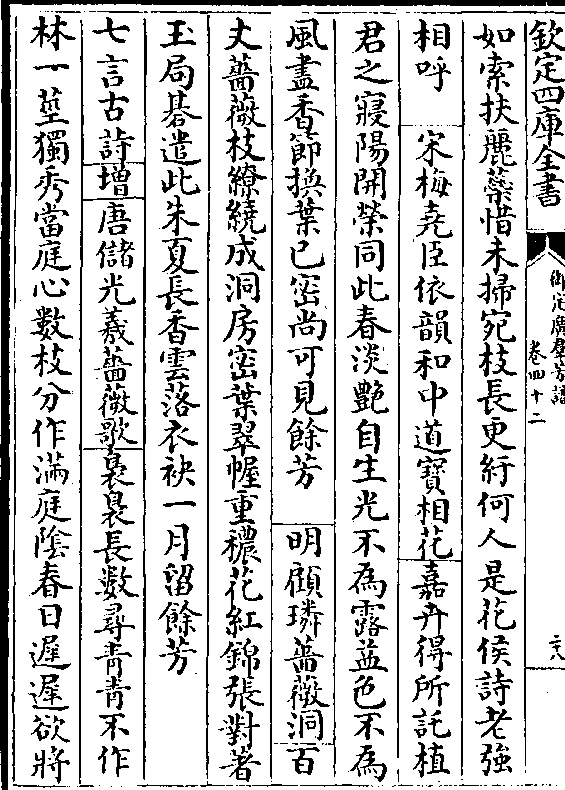 欽定四庫全書
御定廣羣芳譜
卷四十二
二八
如索扶麗藥惜未掃宛枝長更紆何人是花侯詩老強
相呼　宋梅堯臣依韻和中道寶相花嘉卉得所託植
君之寢陽開榮同此春淡艷自生光不為露益色不為
風盡香節換葉已密尚可見餘芳　明顧璘薔薇洞百
丈薔薇枝繚繞成洞房密葉翠幄重穠花紅錦張對著
玉局碁遣此朱夏長香雲落衣袂一月留餘芳
七言古詩增唐儲光羲薔薇歌裊裊長數尋青青不作
林一莖獨秀當庭心數枝分作滿庭陰春日遲遲欲將